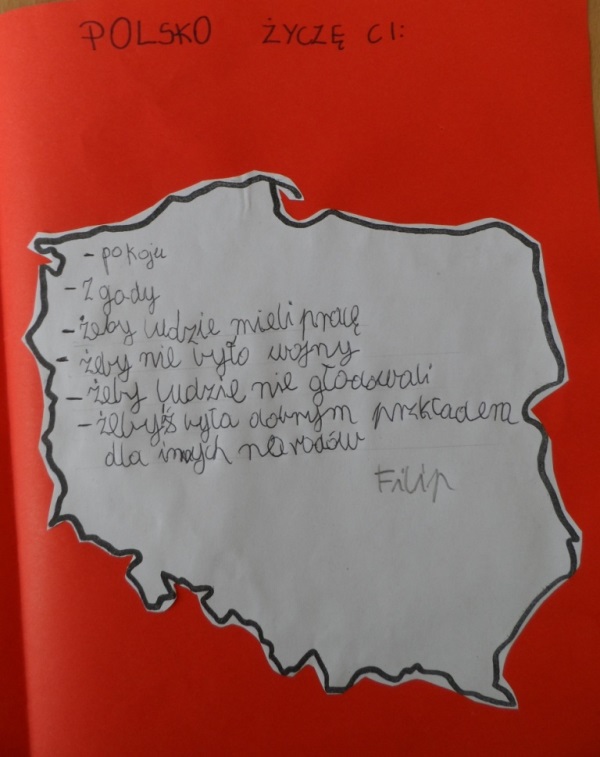 POLSKO ŻYCZĘ CI:
- pokoju
- Zgody
- żeby ludzie mieli pracę
- żeby nie było wojny
- żeby ludzie nie głodowali
- żebyś była dobrym przkładem
dla innych narodów
Filip